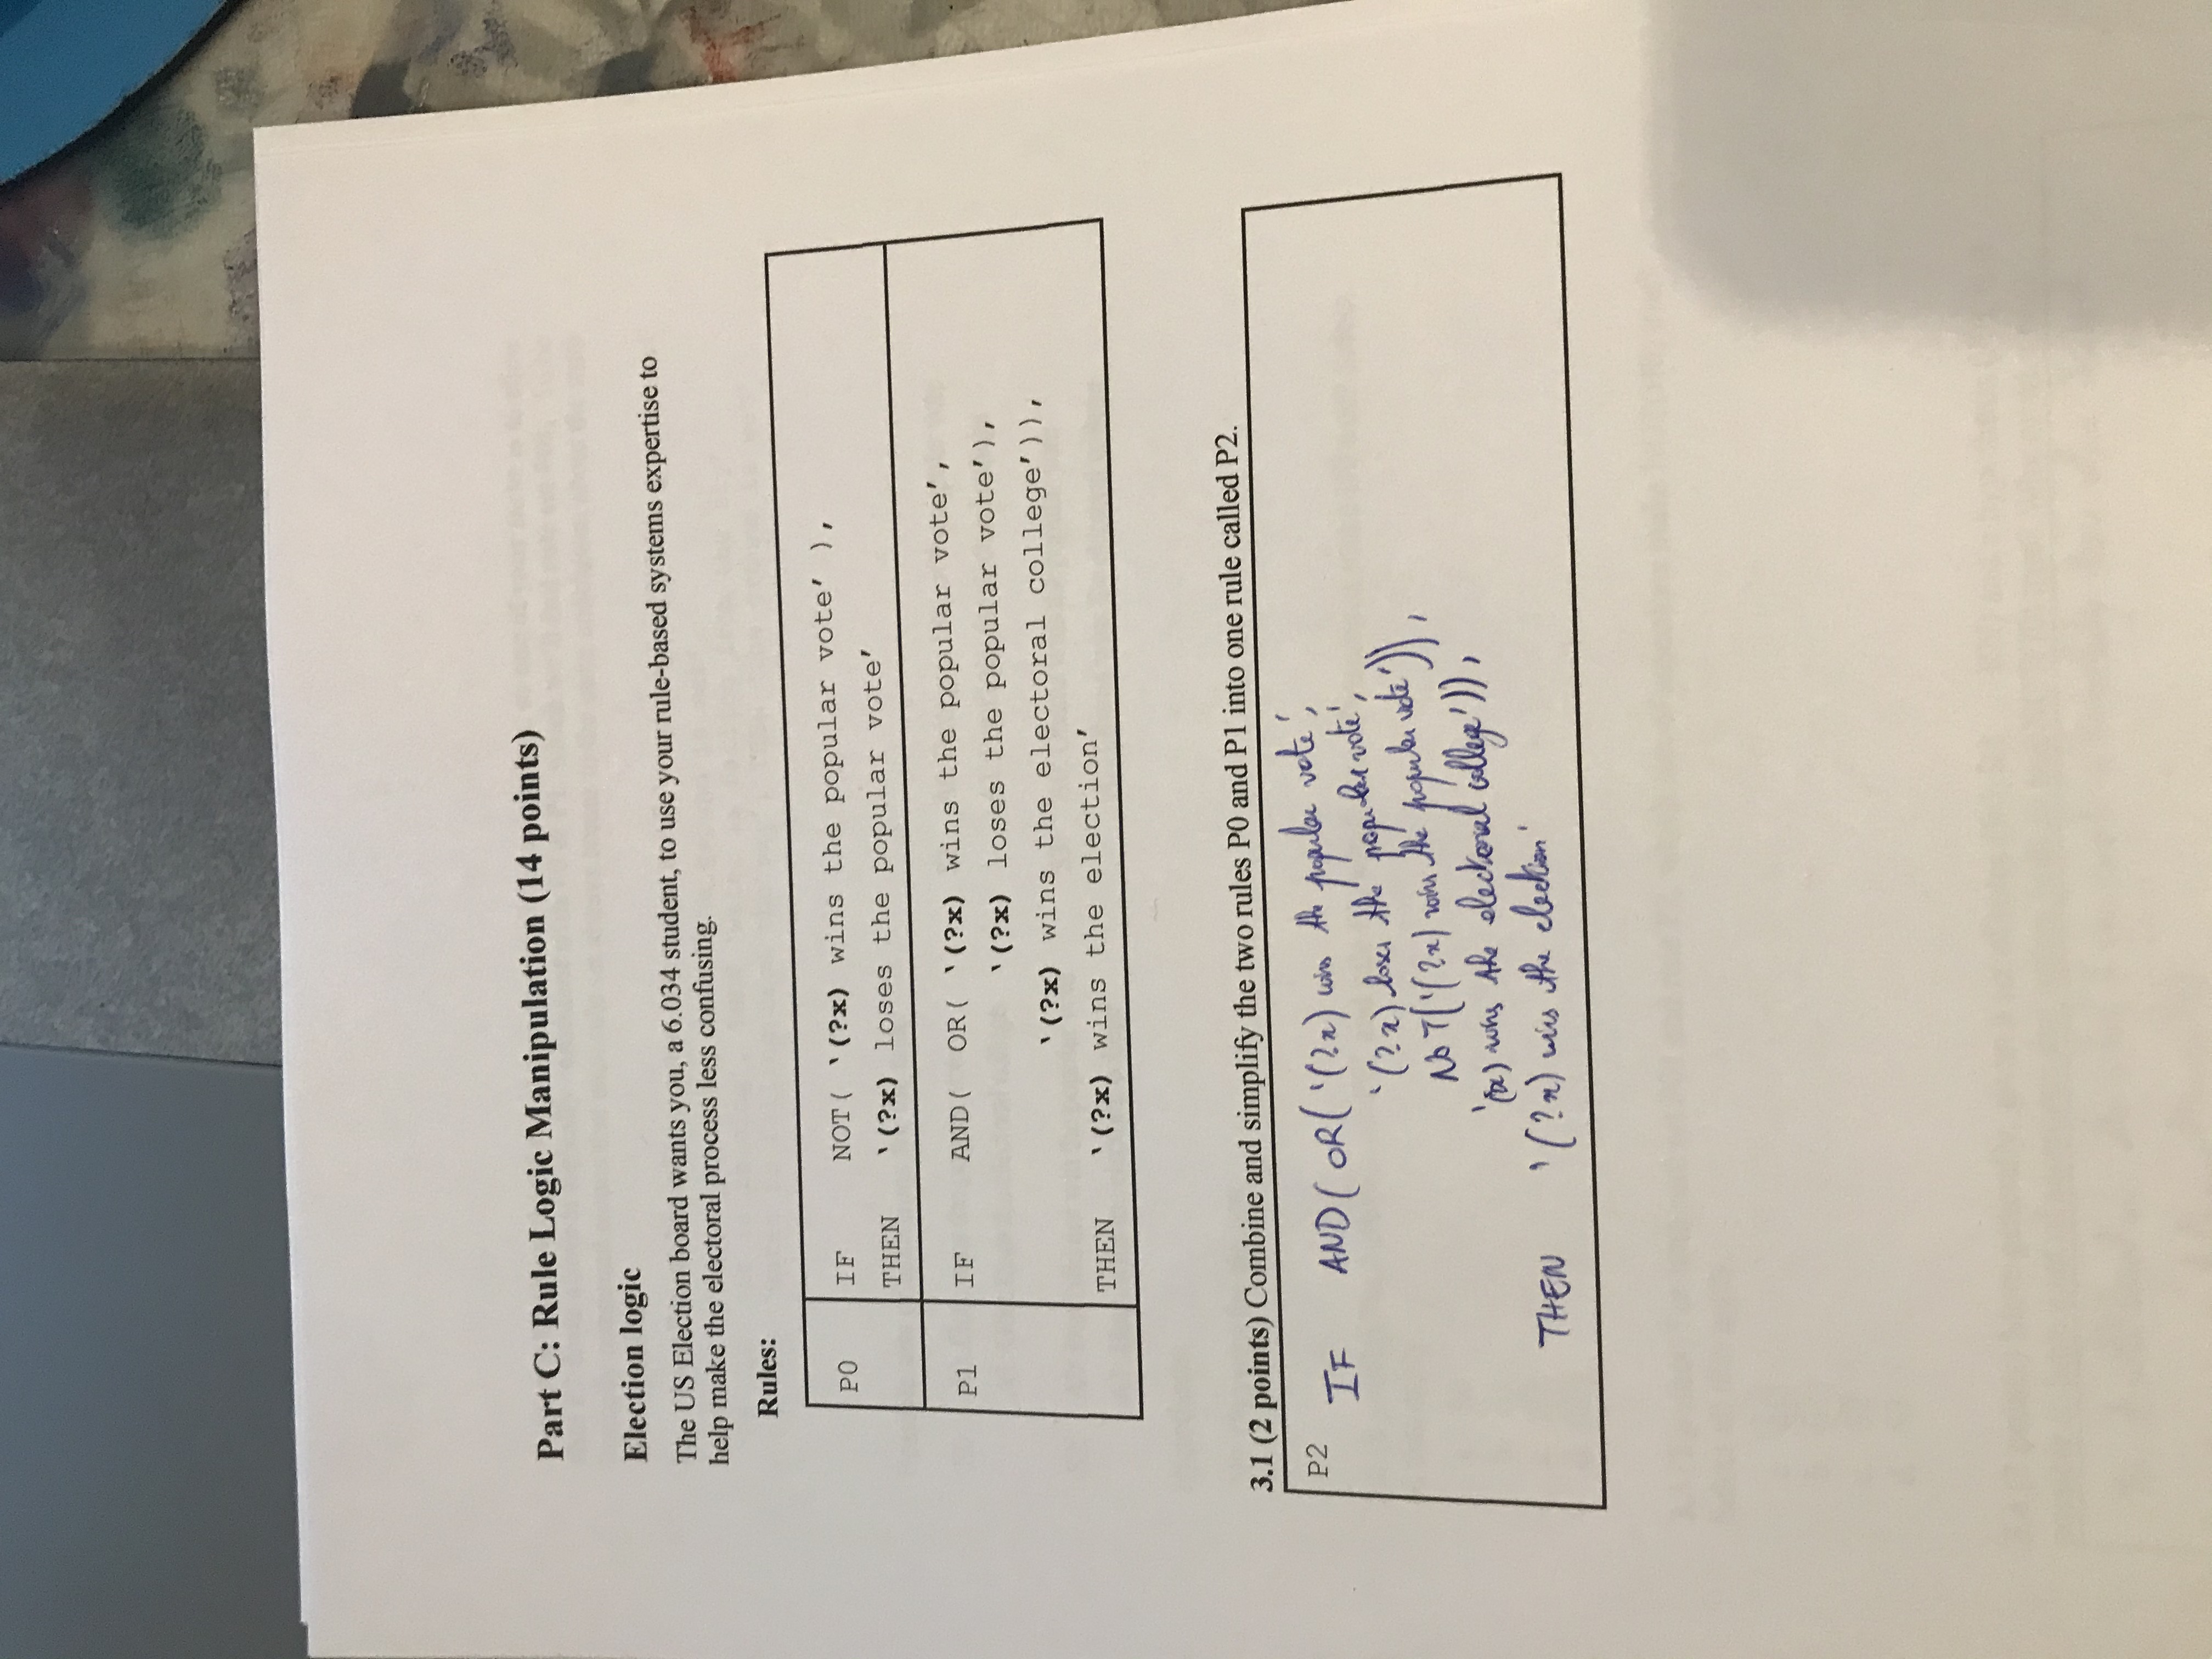 Part C: Rule Logic Manipulation (14 points)
Election logic
The US Election board wants you, a 6.034 student, to use your rule-based systems expertise to
help make the electoral process less confusing.
Rules:
P0 IF NOT( '(?x) wins the popular vote' ),
THEN '(?x) loses the popular vote'
P1 IF AND( OR( '(?x) wins the popular vote',
'(?x) loses the popular vote'),
'(?x) wins the electoral college')),
THEN '(?x) wins the election'
3.1 (2 points) Combine and simplify the two rules P0 and P1 into one rule called P2.
P2 IF AND( OR( '(?x) wins the popular vote',
'(?x) loses the popular vote',
NOT('(?x) wins the popular vote')),
'(x) wins the electoral college')),
THEN '(?x) wins the election'